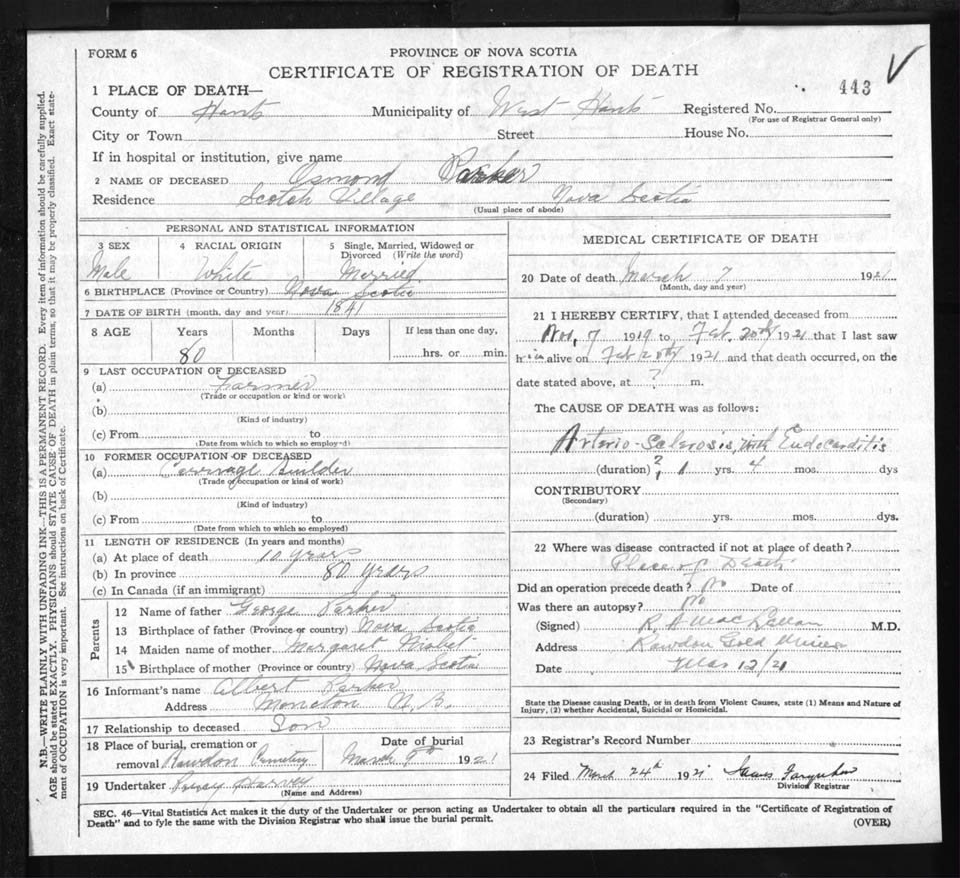 FORM 6
PROVINCE OF NOVA SCOTIA
CERTIFICATE OF REGISTRATION OF DEATH
443
1 PLACE OF DEATH—
County of Hants Municipality of West Hants Registered No.
(For use of Registrar General only)
City or Town Street House No.
If in hospital or institution, give name
2 NAME OF DECEASED Osmond Parker
Residence Scotch Village Nova Scotia
(Usual place of abode)
PERSONAL AND STATISTICAL INFORMATION
3 SEX 4 RACIAL ORIGIN 5 Single, Married, Widowed or
Divorced (Write the word)
Male White Married
6 BIRTHPLACE (Province or Country) Nova Scotia
7 DATE OF BIRTH (month, day and year) 1841
8 AGE Years Months Days If less than one day,
80 hrs. or min.
9 LAST OCCUPATION OF DECEASED
(a) Farmer
(Trade or occupation or kind or work)
(b)
(Kind of industry)
(c) From to
(Date from which to which so employed)
10 FORMER OCCUPATION OF DECEASED
(a) Carriage Builder
(Trade or occupation or kind of work)
(b)
(Kind of industry)
(c) From to
(Date from which to which so employed)
11 LENGTH OF RESIDENCE (In years and months)
(a) At place of death 10 years
(b) In province 80 years
(c) In Canada (if an immigrant)
Parents
12 Name of father George Parker
13 Birthplace of father (Province or country) Nova Scotia
14 Maiden name of mother Margaret
15 Birthplace of mother (Province or country) Nova Scotia
16 Informant's name Albert Parker
Address Moncton N.B.
17 Relationship to deceased Son
18 Place of burial, cremation or Date of burial
removal Rawdon Cemetery March 9th 1921
19 Undertaker Harvey
(Name and Address)
MEDICAL CERTIFICATE OF DEATH
20 Date of death March 7 1921
(Month, day and year)
21 I HEREBY CERTIFY, that I attended deceased from
Nov. 7 1919 to Feb. 20th 1921 that I last saw
him alive on Feb 20th 1921 and that death occurred, on the
date stated above, at ? m.
The CAUSE OF DEATH was as follows:
Arterio-Sclerosis, with Endocarditis
(duration) ? 1 yrs. 4 mos. dys
CONTRIBUTORY
(Secondary)
(duration) yrs. mos. dys.
22 Where was disease contracted if not at place of death?
Place of Death
Did an operation precede death? No Date of
Was there an autopsy? No
(Signed) R A MacLellan M.D.
Address Rawdon Gold Mines
Date Mar 12/21
State the Disease causing Death, or in death from Violent Causes, state (1) Means and Nature of
Injury, (2) whether Accidental, Suicidal or Homicidal.
23 Registrar's Record Number
24 Filed March 24th 1921 James Farquhar
Division Registrar
SEC. 46—Vital Statistics Act makes it the duty of the Undertaker or person acting as Undertaker to obtain all the particulars required in the "Certificate of Registration of
Death" and to fyle the same with the Division Registrar who shall issue the burial permit.
(OVER)
N.B.—WRITE PLAINLY WITH UNFADING INK—THIS IS A PERMANENT RECORD. Every item of information should be carefully supplied.
AGE should be stated EXACTLY. PHYSICIANS should STATE CAUSE OF DEATH in plain terms, so that it may be properly classified. Exact state-
ment of OCCUPATION is very important. See instructions on back of Certificate.